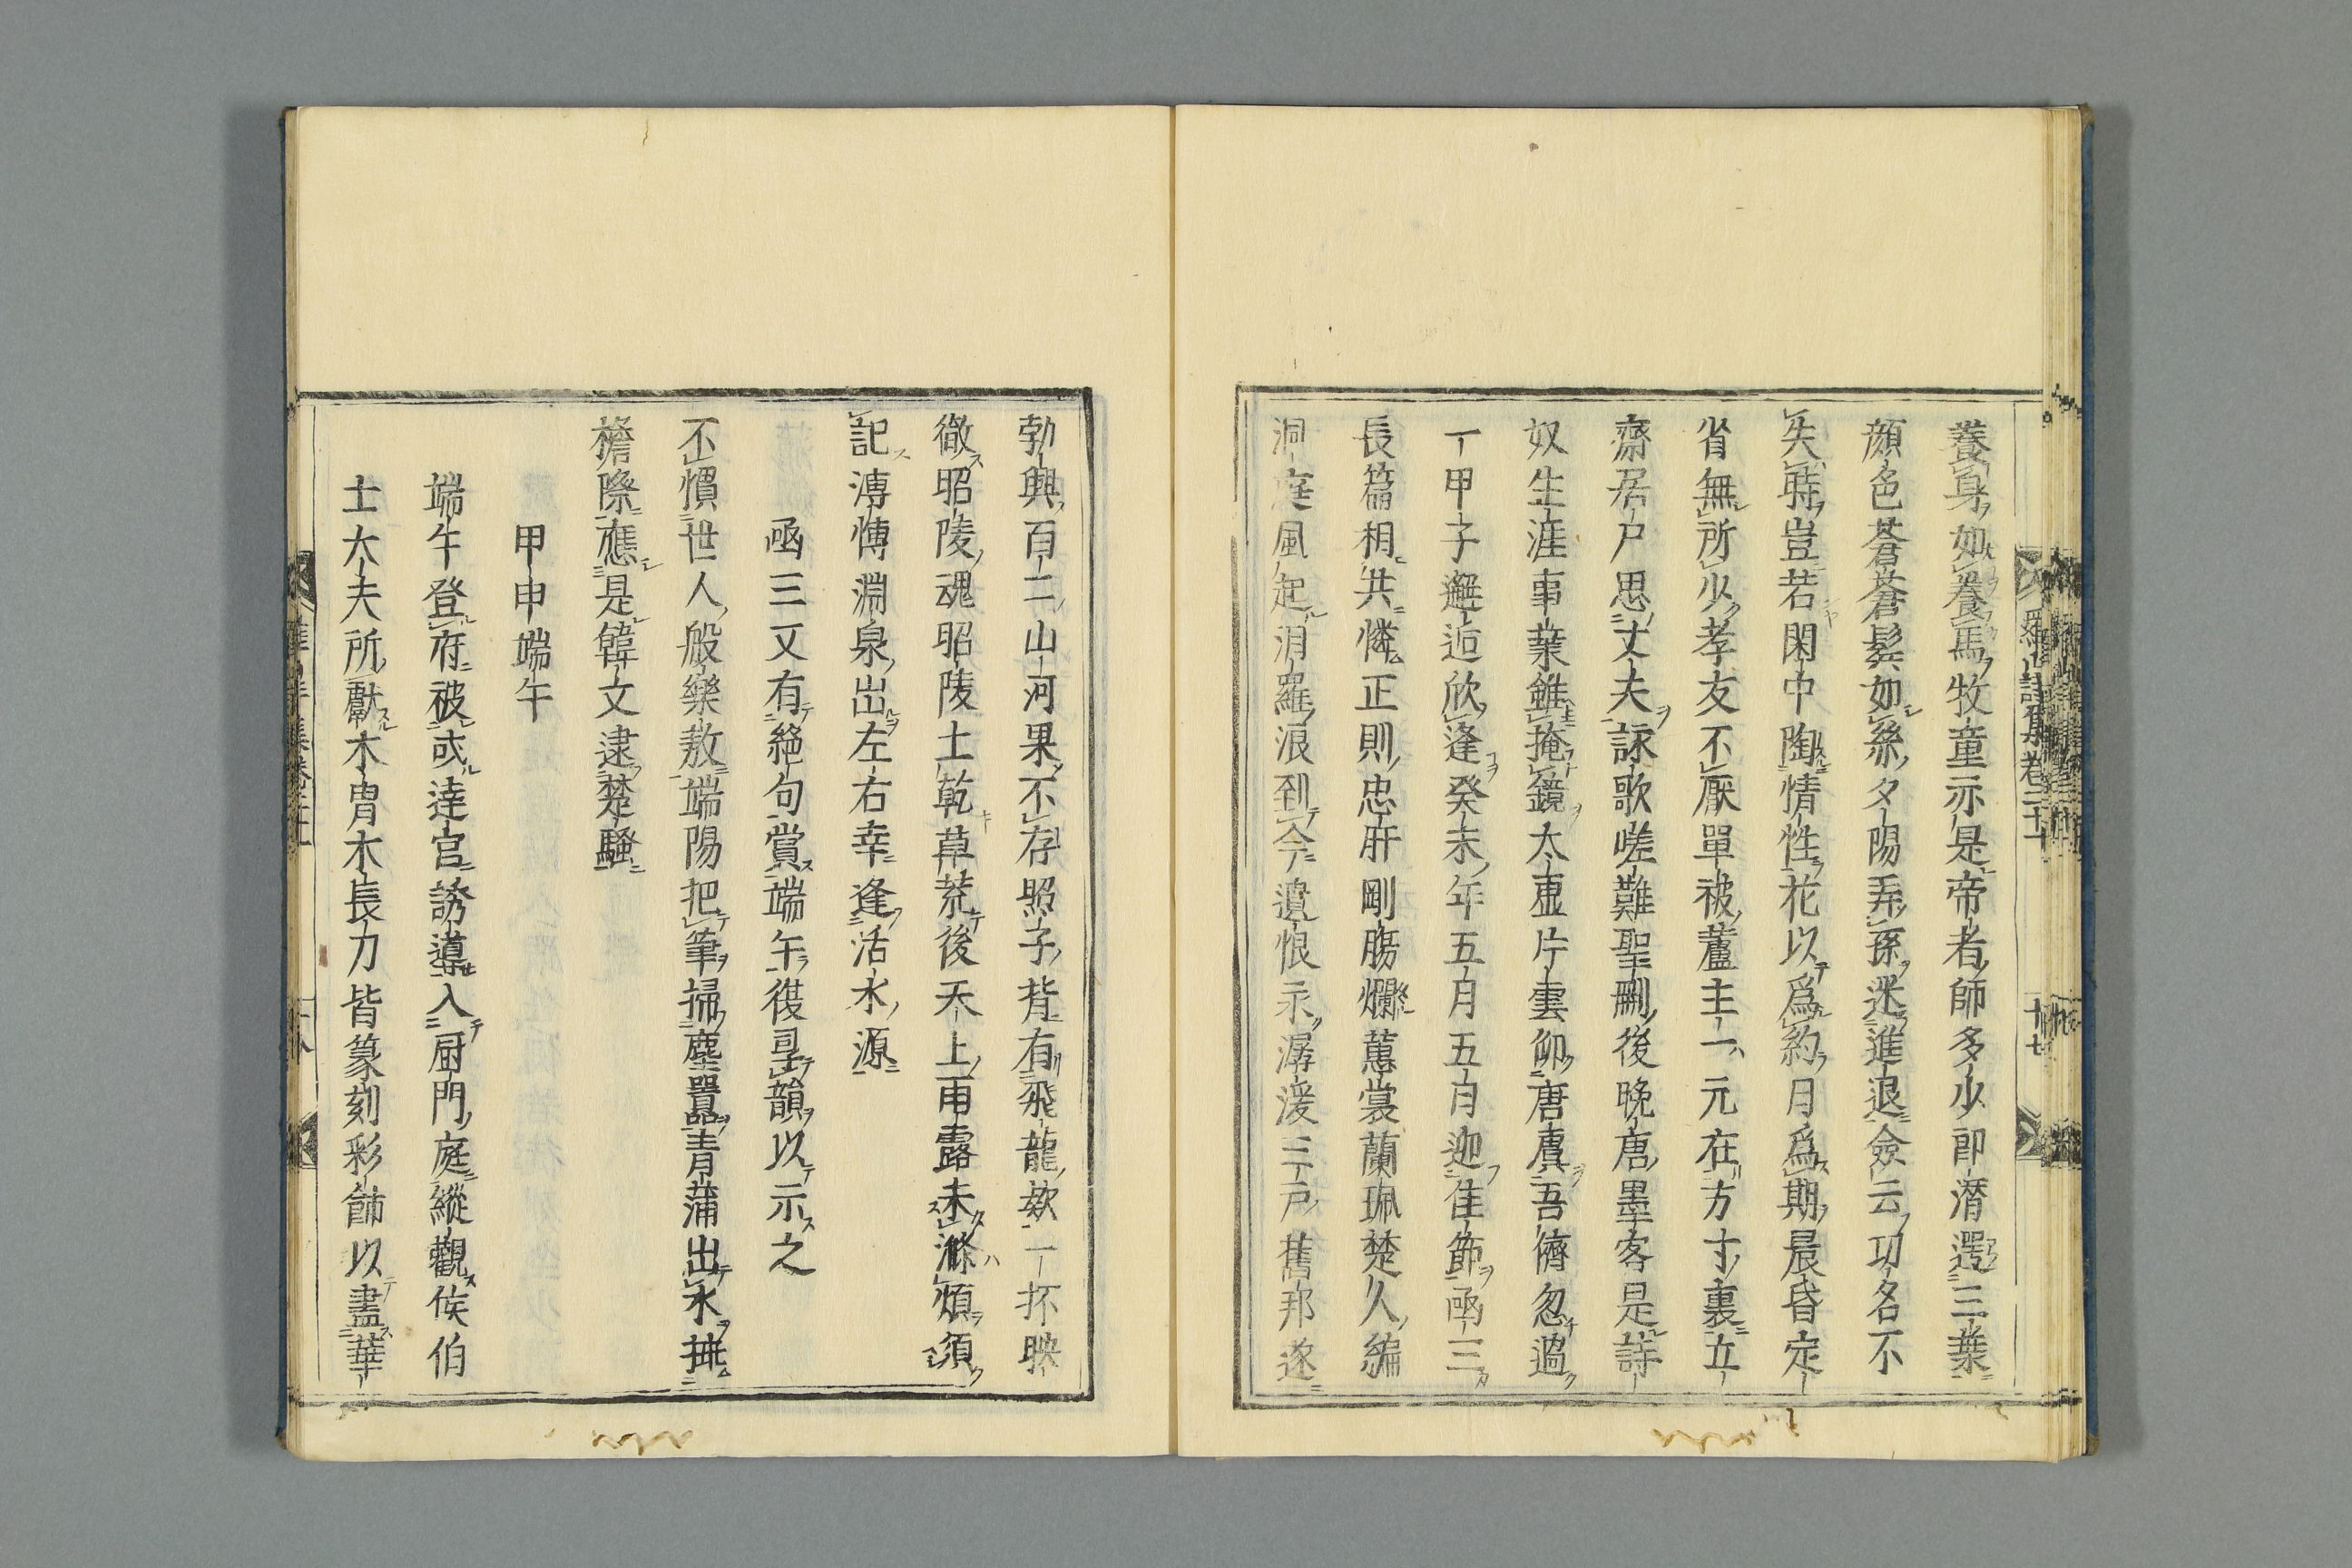 養身如養馬牧童亦是帝者師多少郎潛遌三葉
顏色蒼蒼髮如絲夕陽弄孫迷進退僉云功名不
失時豈若閑中陶情性花以爲約月爲期晨昏定
省無所少孝友不厭單被蘆主一元在方寸裏立
齋居戶思丈夫詠歌嗟難聖刪後晚唐墨客是詩
奴生涯事業雖掩鏡太虛片雲仰唐虞吾儕忽過
一甲子邂逅欣逢癸未年五月五日迎佳節函三
長篇相共憐正則忠肝剛腸爛蕙裳蘭珮楚久編
洞庭風起汨羅浪到今遺恨示潺湲三戶舊邦遂
羅山詩集卷二十
十七
勃興百二山河果不存照子背有飛龍欸一抔映
徹昭陵魂昭陵土乾草荒後天上雨露未滌煩須
記溥慱淵泉出左右幸逢活水源
函三又有絕句賞端午復同韻以示之
不慣世人般樂敖端陽把筆掃塵囂青蒲出水挑
檐際應是韓文逮楚騷
甲申端午
端午登府被或達官誘導入厨門庭縱觀侯伯
士大夫所獻木冑木長刀皆篆刻彩飾以盡華